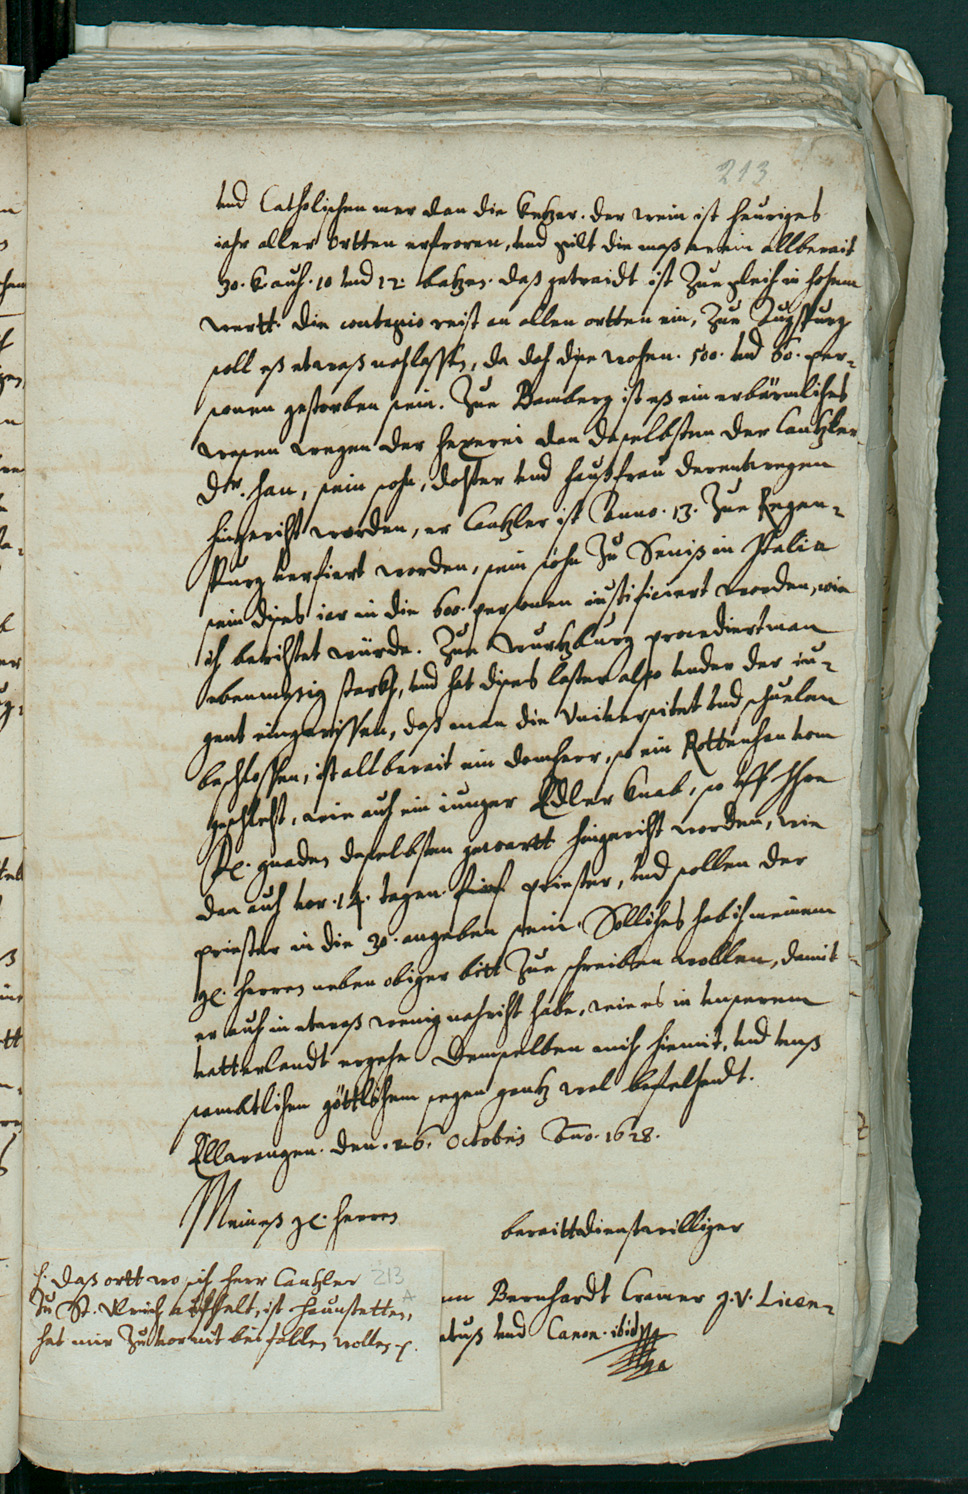 213
und Catholischen mer dan die ketzer. der wein ist heuriges
iahr aller Ortten erfroren, und gilt die maß wein allberait
30. k. auch. 10 und 12. batzen. daß getraidt ist Zue gleich in hohem
wertt. die contagio reist an allen ortten ein, Zue Augspurg
soll eß etwaß nachlassen, da doch dise wochen. 500. und 60. per-
sonen gestorben sein. Zue Bamberg ist eß ein erbärmliches
wesen wegen der hexerei dan daselbsten der Cantzler
Dr. Han, sein sohn, dochter und haußfrau derentwegen
hingericht worden, er Cantzler ist Anno. 13. Zue Regen-
spurg verfiert worden, sein sohn Zu Seniß in Italia
sein dises iar in die 600. personen iustificiert worden, wie
ich berichtet würde. Zue Wurtzburg procediert man
ebenmesig starkh, und hat dises laster also under der iu-
gent eingerissen, daß man die Universitet und schuelen
beschlossen, ist allbereit ein domherr, so ein Rottenhan vom
geschlecht, wie auch ein iunger Edler knab, so uff Ihre
Fl. gnaden daselbsten gewartt hingericht worden, wie
dan auch vor. 14. tagen. fünf priester, und sollen der
priester in die 30. angeben sein. Solliches hab ich meinem
gl. herren neben obiger bitt Zue schreiben wollen, damit
er auch in etwaß wenig nachricht habe, wie es in unserem
vatterlandt ergehe. Demselben mich hiemit, und unß
sambtlichen göttlichem segen gantz wol befelhendt.
Ellwangen. den. 26. Octobris Ano. 1628.
Meineß gl. herren
beraittdienstwilliger
Bernhardt Cramer J.V. Licen-
und Canon. ibid
213
A
daß ortt wo sich herr Cantzler
Zu St. Ulrich auffhelt, ist Haunstetten,
hat mir Zuvor nit beifallen wollen